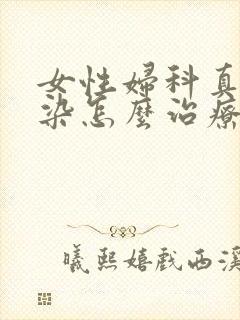 女性婦科真
染怎麼治療
曦熙嬉戲西溪